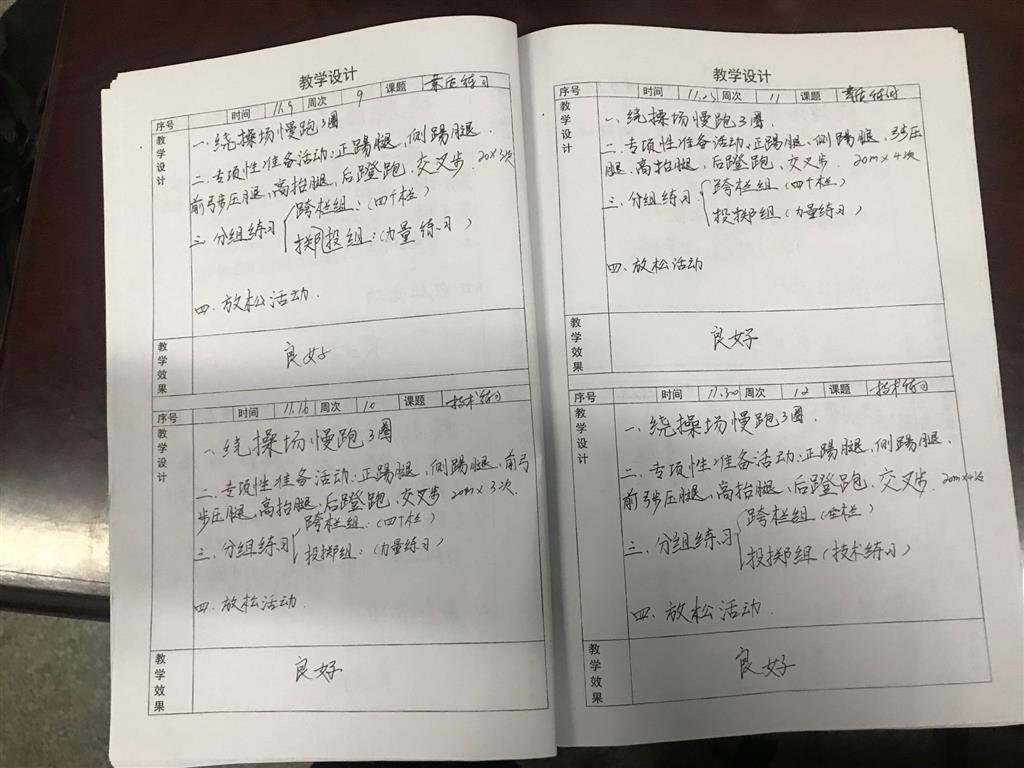 教学设计
序号 时间 11.9 周次 9 课题 素质练习
教学设计
一.绕操场慢跑3圈
二.专项性准备活动:正踢腿,侧踢腿.
前弓步压腿,高抬腿,后蹬跑,交叉步. 20×3次
三.分组练习 跨栏组:(四个栏)
掷投组:(力量练习)
四.放松活动.
教学效果
良好
序号 时间 11.16 周次 10 课题 技术练习
教学设计
一.绕操场慢跑3圈
二.专项性准备活动:正踢腿,侧踢腿,前弓
步压腿,高抬腿,后蹬跑,交叉步 20m×3次.
三.分组练习 跨栏组:(四个栏)
投掷组:(力量练习)
四.放松活动.
教学效果
良好
教学设计
序号 时间 11.23 周次 11 课题 素质练习
教学设计
一.绕操场慢跑3圈.
二.专项性准备活动:正踢腿,侧踢腿,弓步压
腿,高抬腿,后蹬跑,交叉步. 20m×4次
三.分组练习 跨栏组(四个栏)
投掷组(力量练习)
四.放松活动
教学效果
良好
序号 时间 11.30 周次 12 课题 技术练习
教学设计
一.绕操场慢跑3圈.
二.专项性准备活动:正踢腿,侧踢腿.
前弓步压腿,高抬腿,后蹬跑,交叉步. 20m×4次
三.分组练习 跨栏组(全栏)
投掷组(技术练习)
四.放松活动.
教学效果
良好